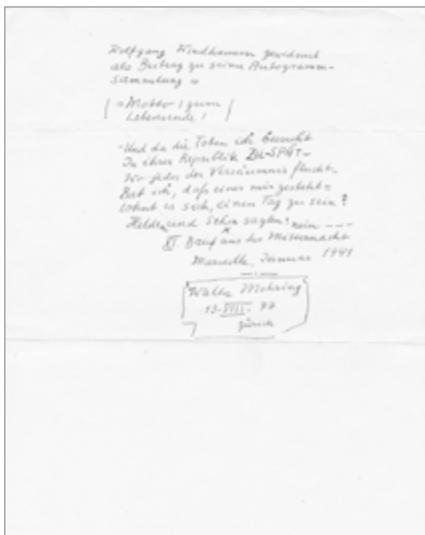 Wolfgang Windhausen gewidmet
als Beitrag zu seiner Autogramm-
sammlung =
(= Motto! zum
Lebensende!)
- Und da die Toten ich besucht
In ihrer Republik ZU-SPÄT -
Wo jeder das Versäumnis flucht -
Bat ich, daß einer mir gesteht =
Lohnt es sich, einen Tag zu sein?
Helden und Seher sagten: nein ---
XI. Brief aus der Mitternacht
Marseille, Januar 1941
Walter Mehring
13. VIII. 77
Zürich